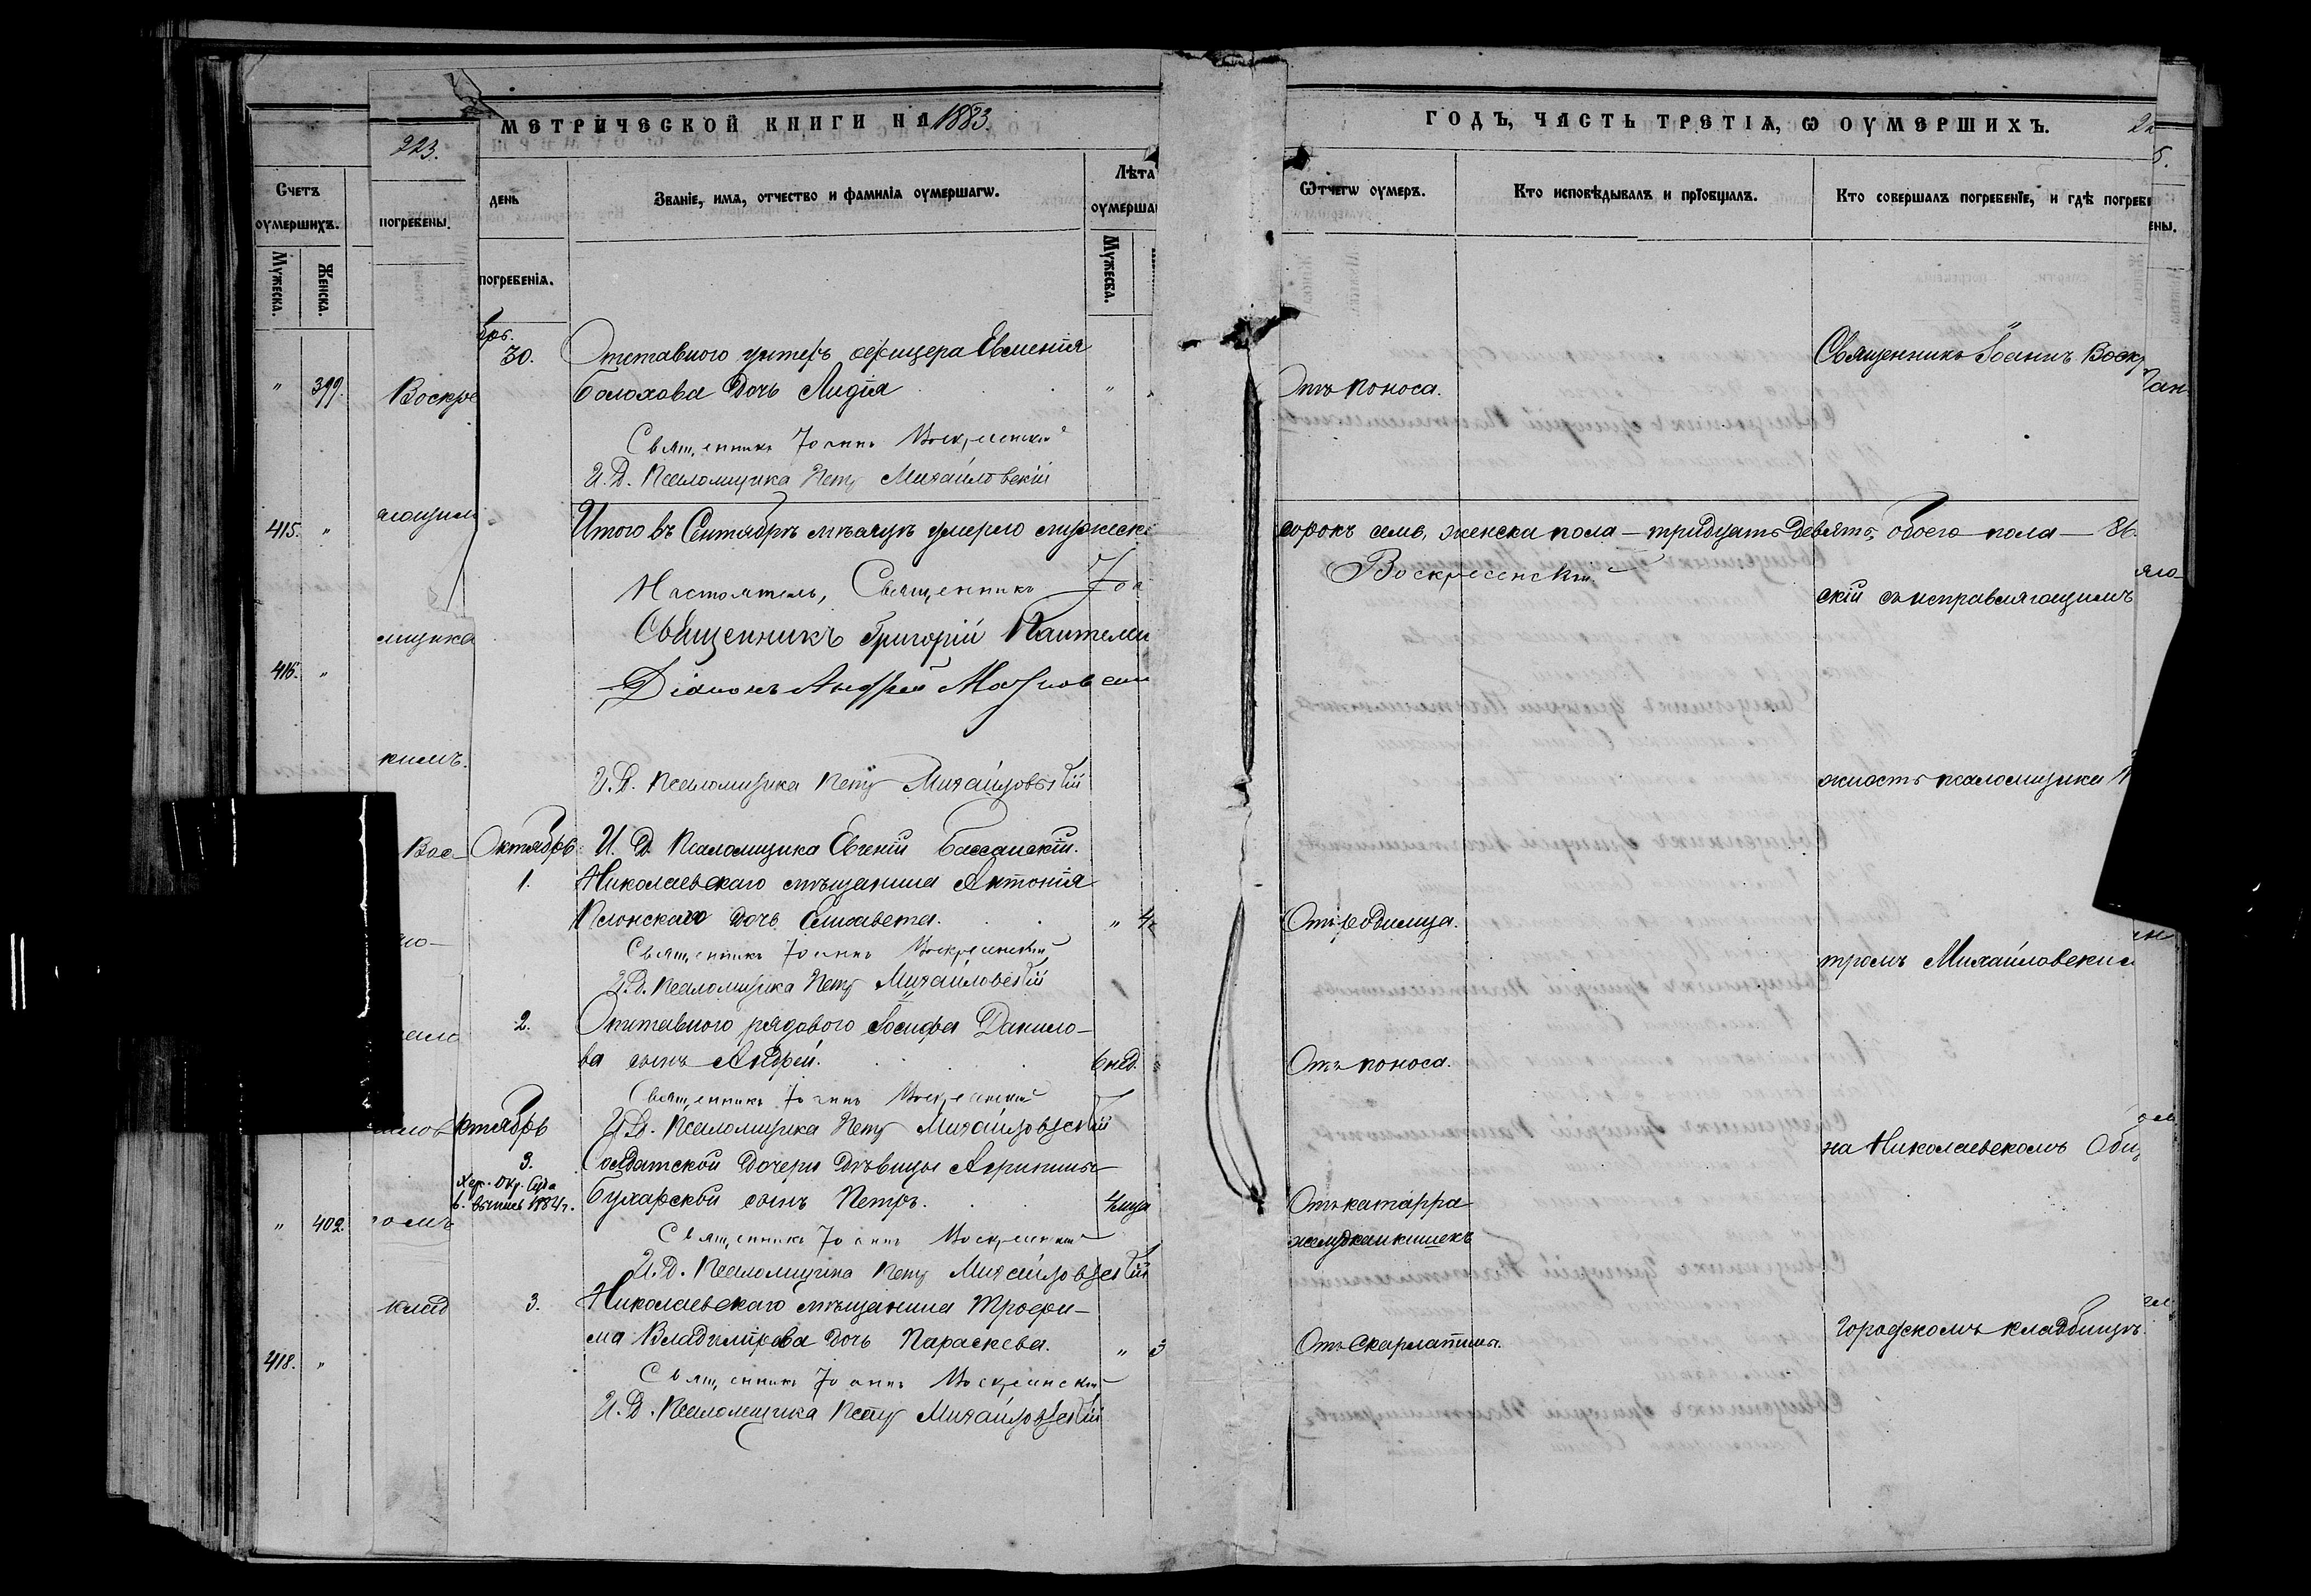 МЕТРИЧЕСКОЙ КНИГИ НА 1883.
223.
Счетъ оумершихъ.
Мужеска.
Женска.
погребены.
день погребенія.
Званіе, имя, отчество и фамилія оумершагѡ.
Лѣта оумерша
Мужеска.
30.
Отставного унтеръ офицера Евменія
" 399.
Воскре
Болохова дочь Лидія "
Священникъ Іоаннъ Воскресенскій
И. Д. Псаломщика Петръ Михайловскій
415. "
ляющим
Итого въ Сентябрѣ мѣсяцѣ умерло мужеск
Настоятель, Священникъ Іоа
мщика
Священникъ Григорій Пантелеи
416. "
Діаконъ Андрей
кимъ.
И. Д. Псаломщика Петръ Михайловскій
Вос-
Октябрь
И. Д. Псаломщика Евгеній Бассанскій.
1.
Николаевскаго мѣщанина Антонія
Плонскаго дочь Елизавета. " 4
Священникъ Іоаннъ Воскресенскій
И. Д. Псаломщика Петръ Михайловскій
2.
Отставного рядового Іосифа Данило-
ва сынъ Андрей. 6 нед. "
Священникъ Іоаннъ Воскресенскій
ктябрь
И. Д. Псаломщика Петръ Михайловскій
3.
Солдатской дочери дѣвицы Агрипины
Хер. Окр. Суда
в. выпись 1884 г.
Бухарской сынъ Петръ.
" 402.
омъ
Священникъ Іоаннъ Воскресенскій
И. Д. Псаломщика Петръ Михайловскій
клад
3.
Николаевскаго мѣщанина Трофи-
ма Владимірова дочь Параскева. " 3
418. "
Священникъ Іоаннъ Воскресенскій
И. Д. Псаломщика Петръ Михайловскій
ГОДЪ, ЧАСТЬ ТРЕТІЯ, Ѡ ОУМЕРШИХЪ.
Ѿчегѡ оумеръ.
Кто исповѣдывалъ и пріобщалъ.
Кто совершалъ погребеніе, и гдѣ погребе
ены.
Священникъ Іоаннъ Воскр
Отъ поноса.
сорокъ семь, женска пола — тридцать девять, обоего пола — 86.
Воскресенскій
скій съ исправляющимъ
жность псаломщика
Отъ родимца.
тромъ Михайловским
Отъ поноса.
на Николаевскомъ Общ
Отъ катарра
желудка и кишекъ
городскомъ кладбищѣ.
Отъ Скарлатины.